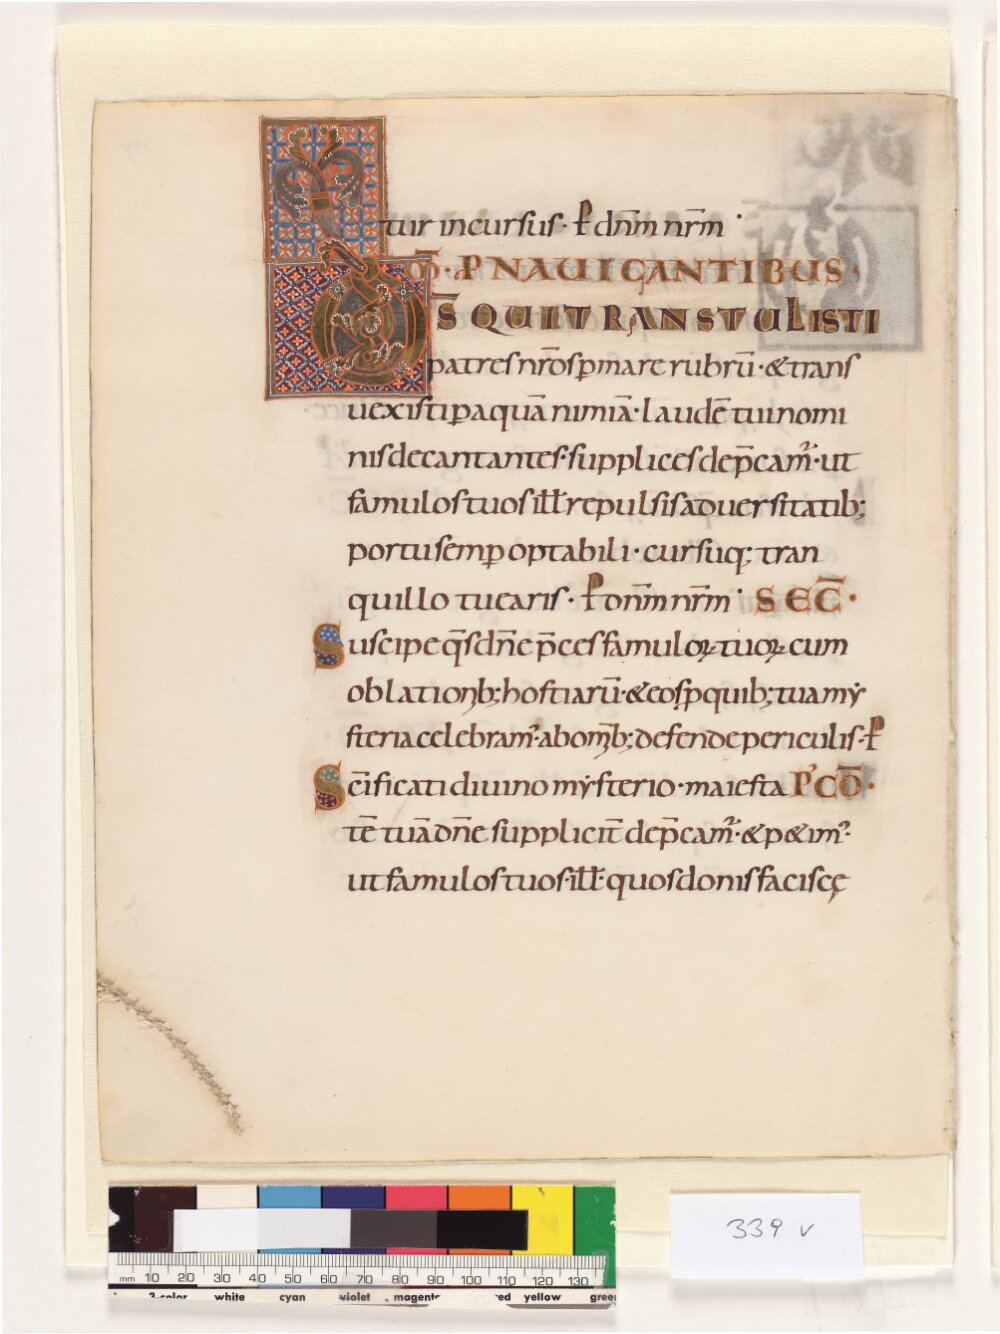 tur incursus· ꝑ dn̄m nr̄m
M̄·P NAUIGANTIBUS·
D̄S QUI TRANSTULISTI
patres nr̄os ꝑ mare rubrū·& trans
uexisti ꝑ aquā nimiā·laudē tui nomi
nis decantantes·supplices dep̄camˀ·ut
famulos tuos ill̄ repulsis aduersitatib;
portu semꝑ optabili·cursuq; tran
quillo tuearis· ꝑ dn̄m nr̄m· SEC̄·
Suscipe q̄s dn̄e p̄ces famuloꝝ tuoꝝ cum
oblationib; hostiarū·& eos ꝓ quib; tua mẏ
steria celebramˀ·ab om̄ib; defende periculis· ꝑ
Sc̄ificati diuino mẏsterio·maiesta P̉CŌ·
tē tuā dn̄e suppliciť dep̄camˀ·& p&imˀ·
ut famulos tuos·ill̄·quos donis facis cę
339 v
mm 10 20 30 40 50 60 70 80 90 100 110 120 130
3-color white cyan violet magenta red yellow green